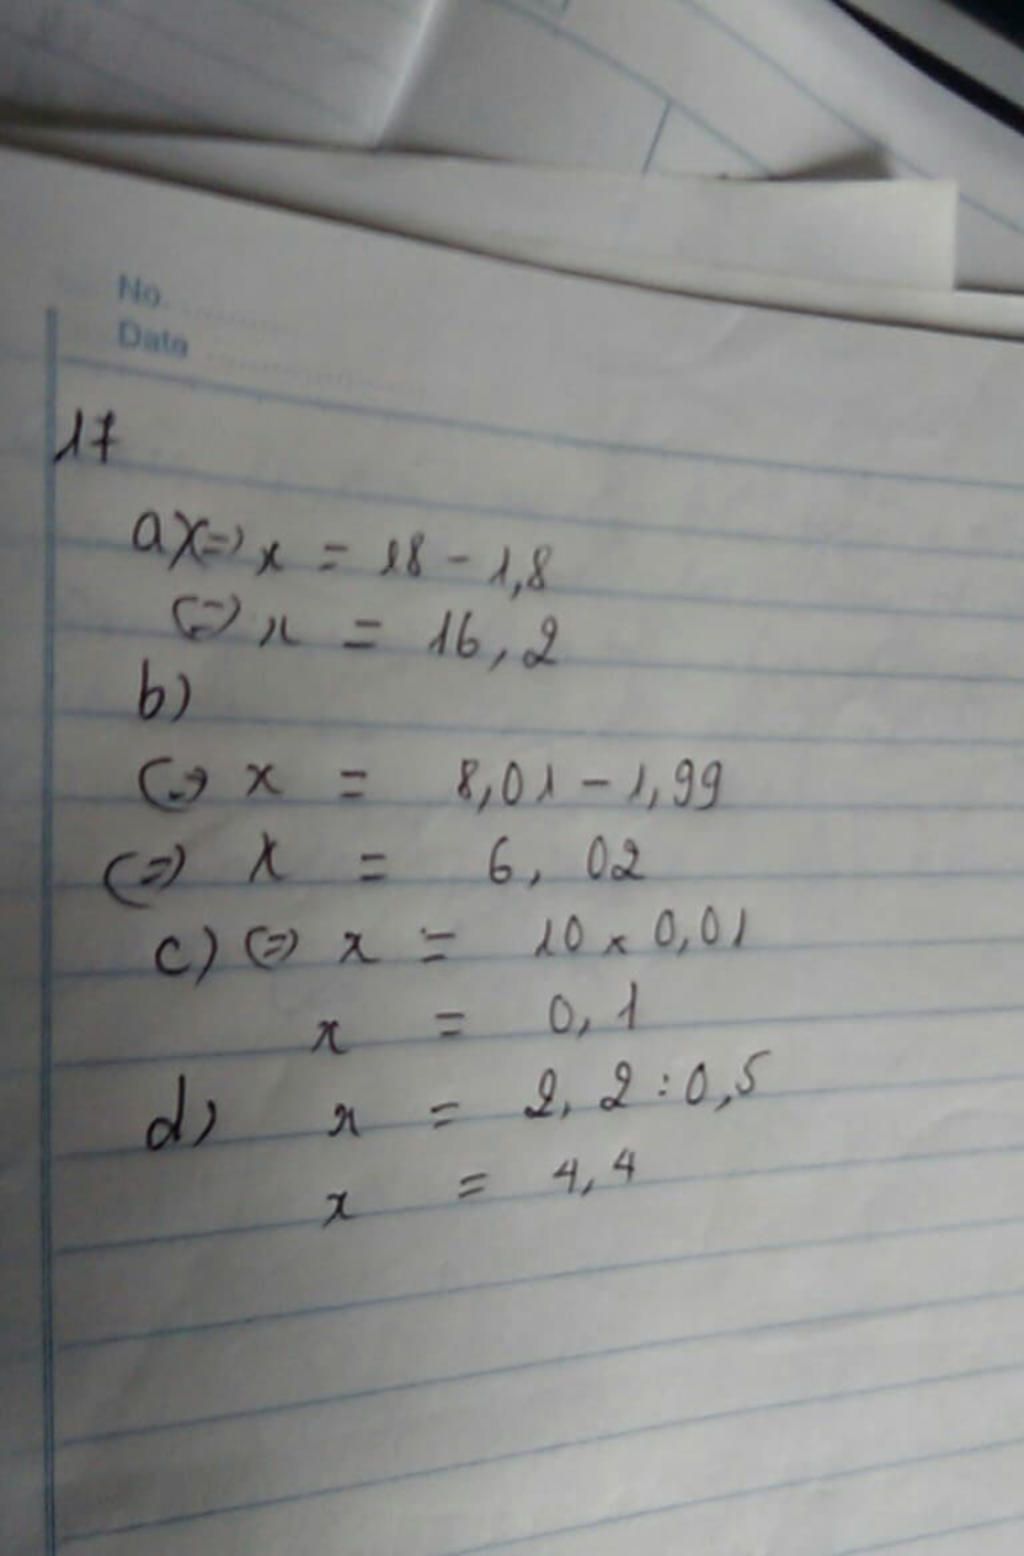 No.
Date
17
a) <=> x = 18 - 1,8
<=> x = 16,2
b)
<=> x = 8,01 - 1,99
<=> x = 6,02
c) <=> x = 10 x 0,01
x = 0,1
d) x = 2,2 : 0,5
x = 4,4